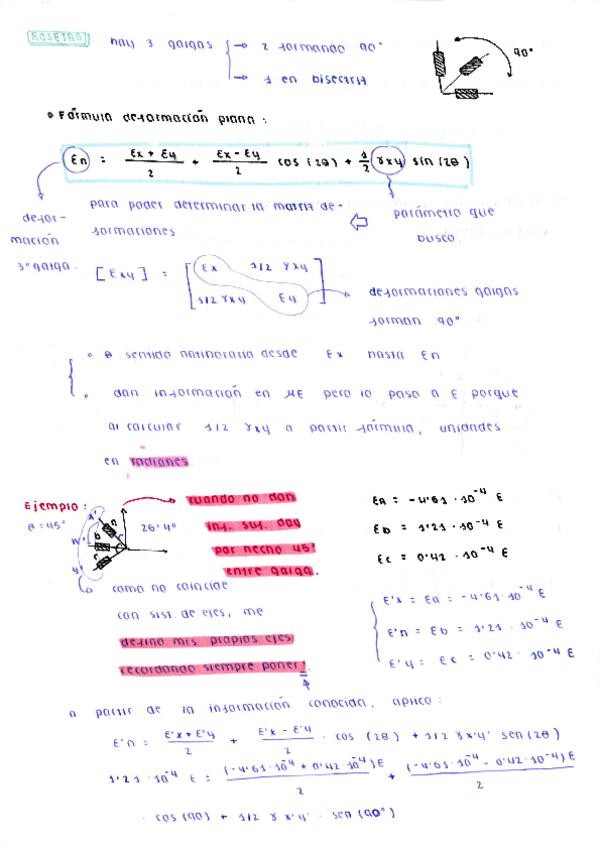 ROSETAS hay 3 galgas → 2 formando 90°
→ 1 en bisectriz
90°
• Fórmula deformación plana:
εn = (εx + εy)/2 + (εx - εy)/2 cos (2θ) + 1/2 γxy sin (2θ)
defor-
mación
3ª galga.
para poder determinar la matriz de-
formaciones
⇦ parámetro que
busco.
[εxy] = [εx 1/2 γxy
1/2 γxy εy]
→ deformaciones galgas
forman 90°
• θ sentido antihorario desde εx hasta εn
• dan información en με pero lo paso a ε porque
al calcular 1/2 γxy a partir fórmula, unidades
en radianes
Ejemplo:
θ = 45°
x'
n'
y'
a
b
c
26'4°
cuando no dan
inf. suf. doy
por hecho 45°
entre galga.
εa = -4'61 · 10⁻⁴ ε
εb = 1'21 · 10⁻⁴ ε
εc = 0'42 · 10⁻⁴ ε
como no coincide
con sist. de ejes, me
defino mis propios ejes
recordando siempre poner '.
ε'x = εa = -4'61 · 10⁻⁴ ε
ε'n = εb = 1'21 · 10⁻⁴ ε
ε'y = εc = 0'42 · 10⁻⁴ ε
a partir de la información conocida, aplico:
ε'n = (ε'x + ε'y)/2 + (ε'x - ε'y)/2 · cos (2θ) + 1/2 γx'y' · sen (2θ)
1'21 · 10⁻⁴ ε = (-4'61 · 10⁻⁴ + 0'42 · 10⁻⁴) ε/2 + (-4'61 · 10⁻⁴ - 0'42 · 10⁻⁴) ε/2
· cos (90) + 1/2 γx'y' · sen (90°)